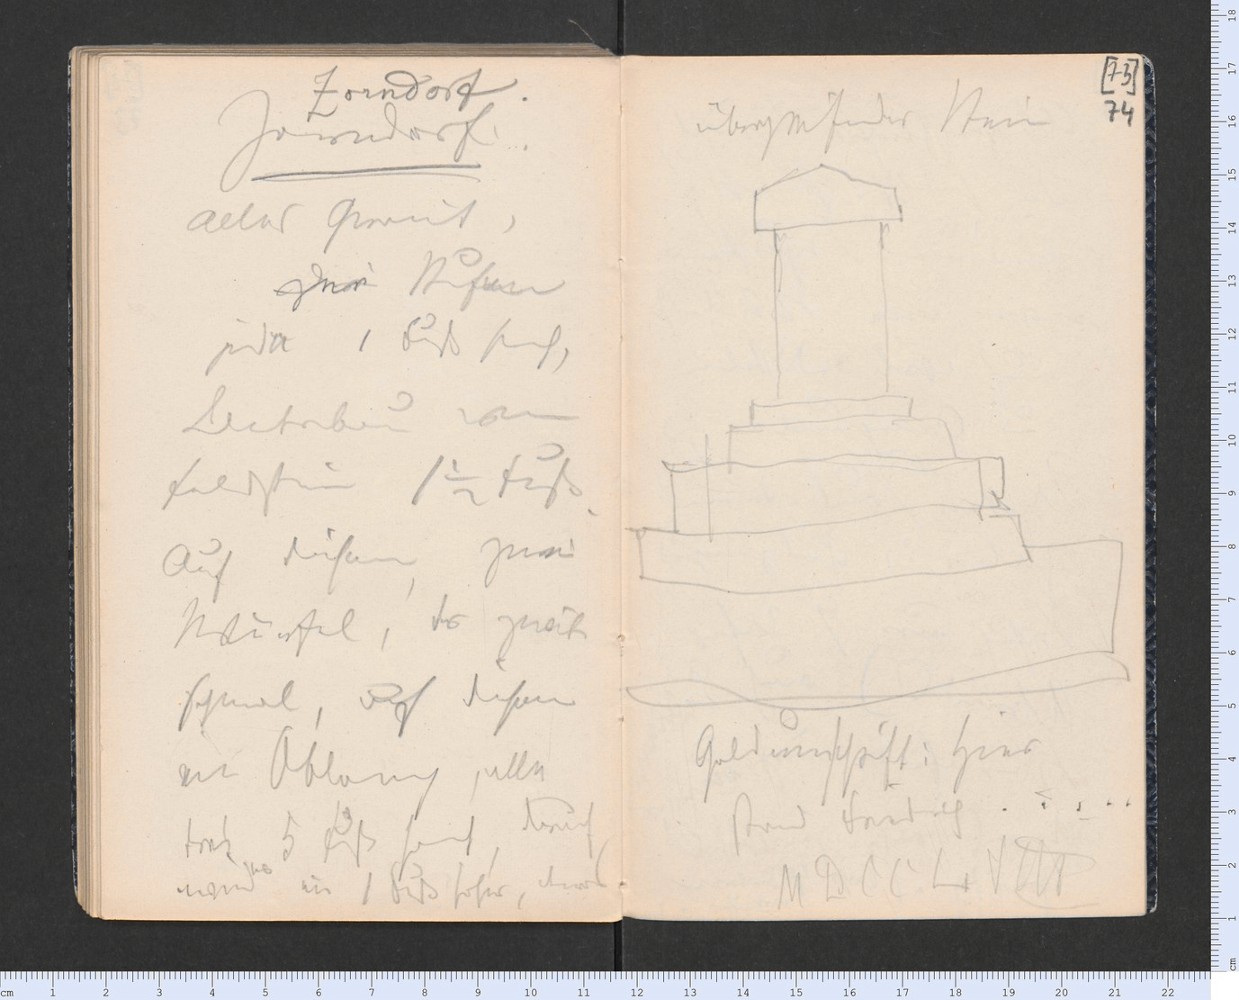 Zorndorf.
Zorndorf.
alles Granit,
drei Stufen
jede 1 Fuß hoch,
Unterbau von
Feldstein 1½ Fuß.
Auf diesem, zwei
Würfel, der zweite
schmal, auf diesem
ein Oblong, alles
5 Fuß hoch, darauf
ein 1 Fuß hoher,
[73]
74
übergreifender Stein
Goldinschrift: Hier
stand Friedrich . . . . . .
MDCCLVIII